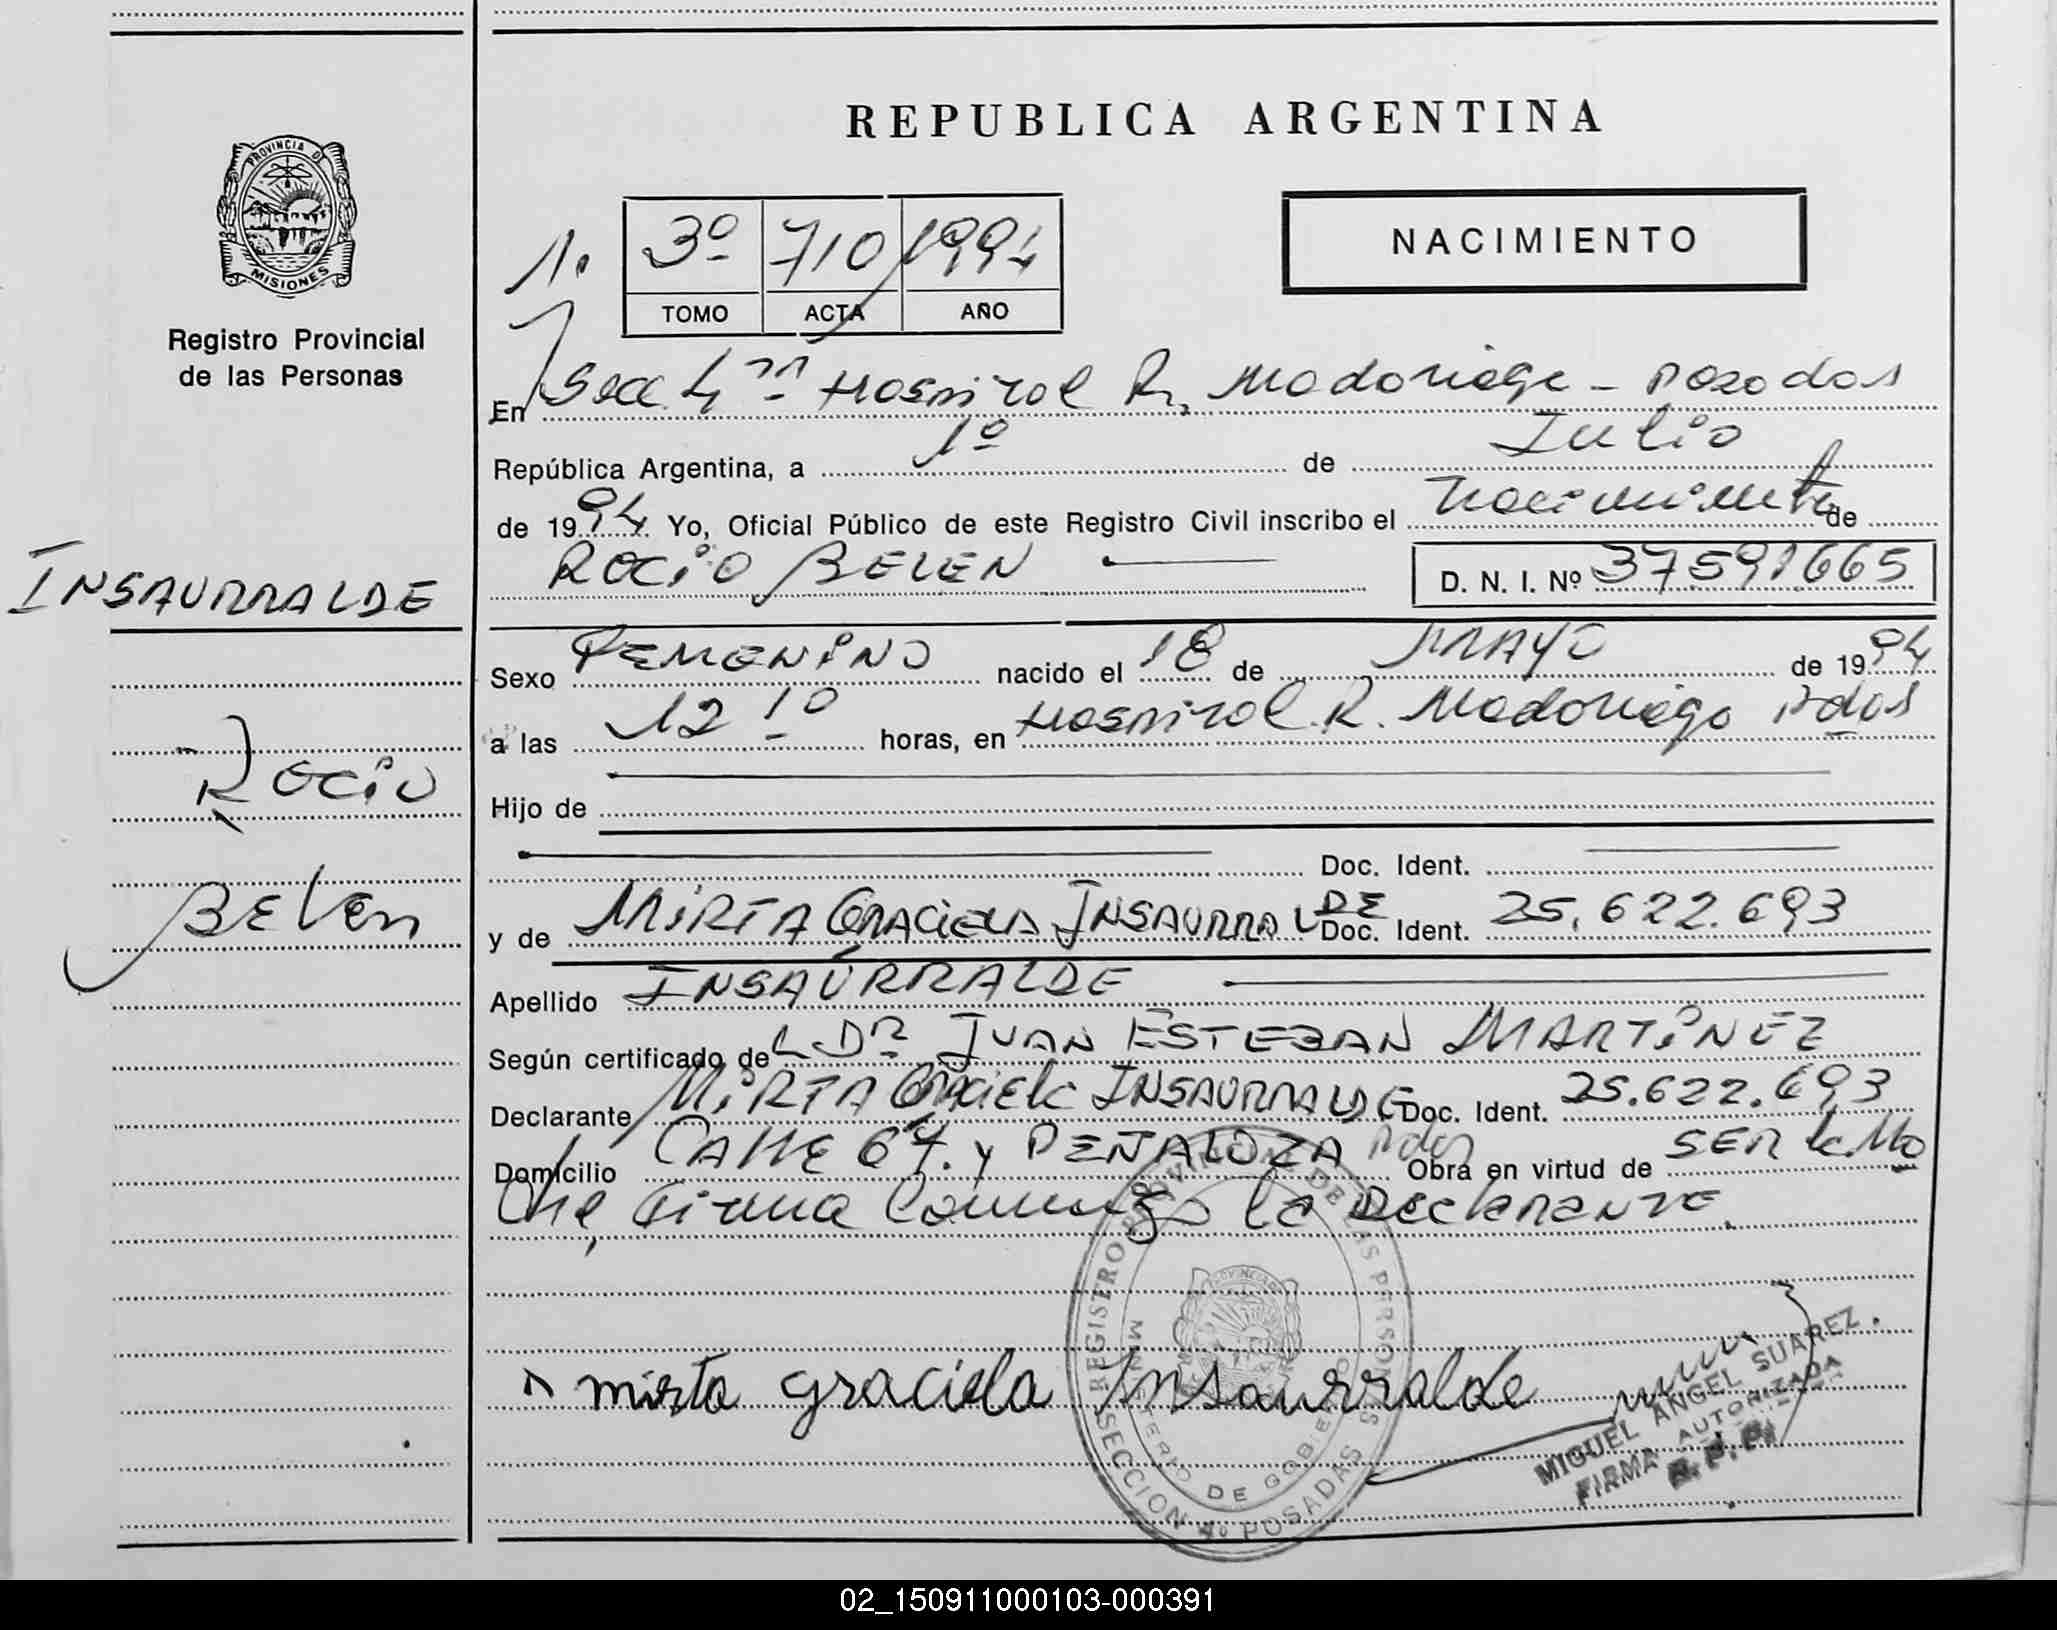 REPUBLICA ARGENTINA
PROVINCIA DE
MISIONES
Registro Provincial
de las Personas
1.
3º 710 1994
TOMO ACTA AÑO
NACIMIENTO
En Secc. 4ª Hospital R. Madariaga - Posadas
República Argentina, a 1º de Julio
de 1994. Yo, Oficial Público de este Registro Civil inscribo el nacimiento de
INSAURRALDE
ROCIO BELEN D. N. I. Nº 37591665
Sexo FEMENINO nacido el 18 de MAYO de 1994
a las 12 10 horas, en Hospital R. Madariaga Pdas
Rocio
Hijo de
Doc. Ident.
Belen
y de MIRTA GRACIELA INSAURRALDE Doc. Ident. 25.622.693
Apellido INSAURRALDE
Según certificado de L Dr JUAN ESTEBAN MARTINEZ
Declarante MIRTA Graciela INSAURRALDE Doc. Ident. 25.622.693
Domicilio CALLE 67 y PEÑALOZA Pdas Obra en virtud de SER la Ma
dre, Firma Conmigo la Declarante.
REGISTRO PROVINCIAL DE LAS PERSONAS
MINISTERIO DE GOBIERNO
SECCION 4º POSADAS
mirta graciela Insaurralde
MIGUEL ANGEL SUAREZ
FIRMA AUTORIZADA
R.P.P.
02_150911000103-000391